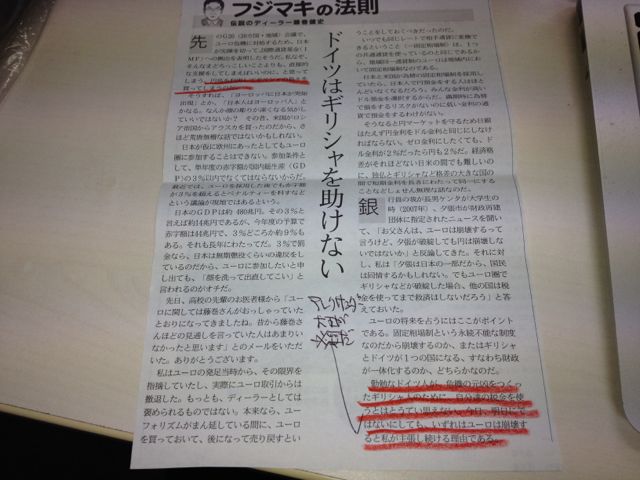 フジマキの法則
伝説のディーラー藤巻健史
ドイツはギリシャを助けない
先
出現」とか、「日本人はヨーロッパ人」とか
かなる。なんか顔の彫りが深くなる気がして
いいではないか? その昔、米国がロシ
ア帝国からアラスカを買ったのだから、さ
ほど荒唐無稽な話ではないかもしれない。
日本が仮に欧州にあったとしてもユーロ
圏に参加することはできない。参加条件と
して、単年度の赤字額が国内総生産(GD
P)の3%以内でなくてはならないからだ。
が3%を超えるとペナルティーを科すなど
という議論が現地ではあるという。
日本のGDPは約480兆円。その3%と
言えば約14兆円であるが、今年度の予算で
赤字額は44兆円で、3%どころか約9%も
ある。それも長年にわたってだ。3%で罰
金なら、日本は無期懲役くらいの違反をし
ているのだから、ユーロに参加したいと申
し出ても、「顔を洗って出直してこい」と
言われるのがオチだ。
先日、高校の先輩のお医者様から「ユー
ロに関しては藤巻さんがおっしゃっていた
とおりになってきましたね。昔から藤巻さ
んほどの見通しを言っていた人はあまりい
なかったと思います」とのメールをいただ
いた。ありがとうございます。
私はユーロの発足当時から、その限界を
指摘していたし、実際にユーロ取引からは
撤退した。もっとも、ディーラーとしては
褒められるものではない。本来なら、ユー
フォリズムがまん延している間に、ユーロ
を買っておいて、後になって売り戻すとい
うことをしておくべきだったのだ。
いつでも同じレートで相手通貨に変換で
きるということ(=固定相場制)は、1つ
の共通通貨を使っているのと同じであるか
ら、地域同一通貨制のユーロは地域内にお
いて固定相場制なのである。
日本と米国が為替の固定相場制を採用し
ていたら、日本人で円預金をする人はほと
んどいなくなるだろう。みんな金利が高い
ドル預金を選択するからだ。満期時に為替
で損をするリスクがないのに低い金利の通
貨で預金をするわけがない。
そうなると円マーケットを守るため日銀
はたえず円金利をドル金利と同じにしなけ
ればならない。ゼロ金利にしたくても、ド
ル金利が2%だったら円も2%だ。経済格
差がそれほどない日米の間でも難しいのに、
独仏とギリシャなど格差の大きな国の
銀
行員の我が長男ケンタが大学生の
時(2007年)、夕張市が財政再建
団体に指定されたニュースを聞い
て、「お父さんは、ユーロは崩壊するって
言うけど、夕張が破綻しても円は崩壊しな
いではないか」と反論してきた。それに対
し、私は「夕張は日本の一部だから、国民
は同情するかもしれない。でもユーロ圏で
ギリシャなどが破綻した場合、他の国は税
金を使ってまで救済はしないだろう」と答
えておいた。
ユーロの将来を占うにはここがポイント
である。固定相場制という永続不能な制度
なのだから崩壊するのか、またはギリシャ
とドイツが1つの国になる、すなわち財政
が一体化するのか、どちらかなのだ。
勤勉なドイツ人が、危機の元凶をつくっ
たギリシャ人のために、自分達の税金を使
うとはとうてい思えない。今日、明日にで
はないにしても、いずれはユーロは崩壊す
ると私が主張し続ける理由である。